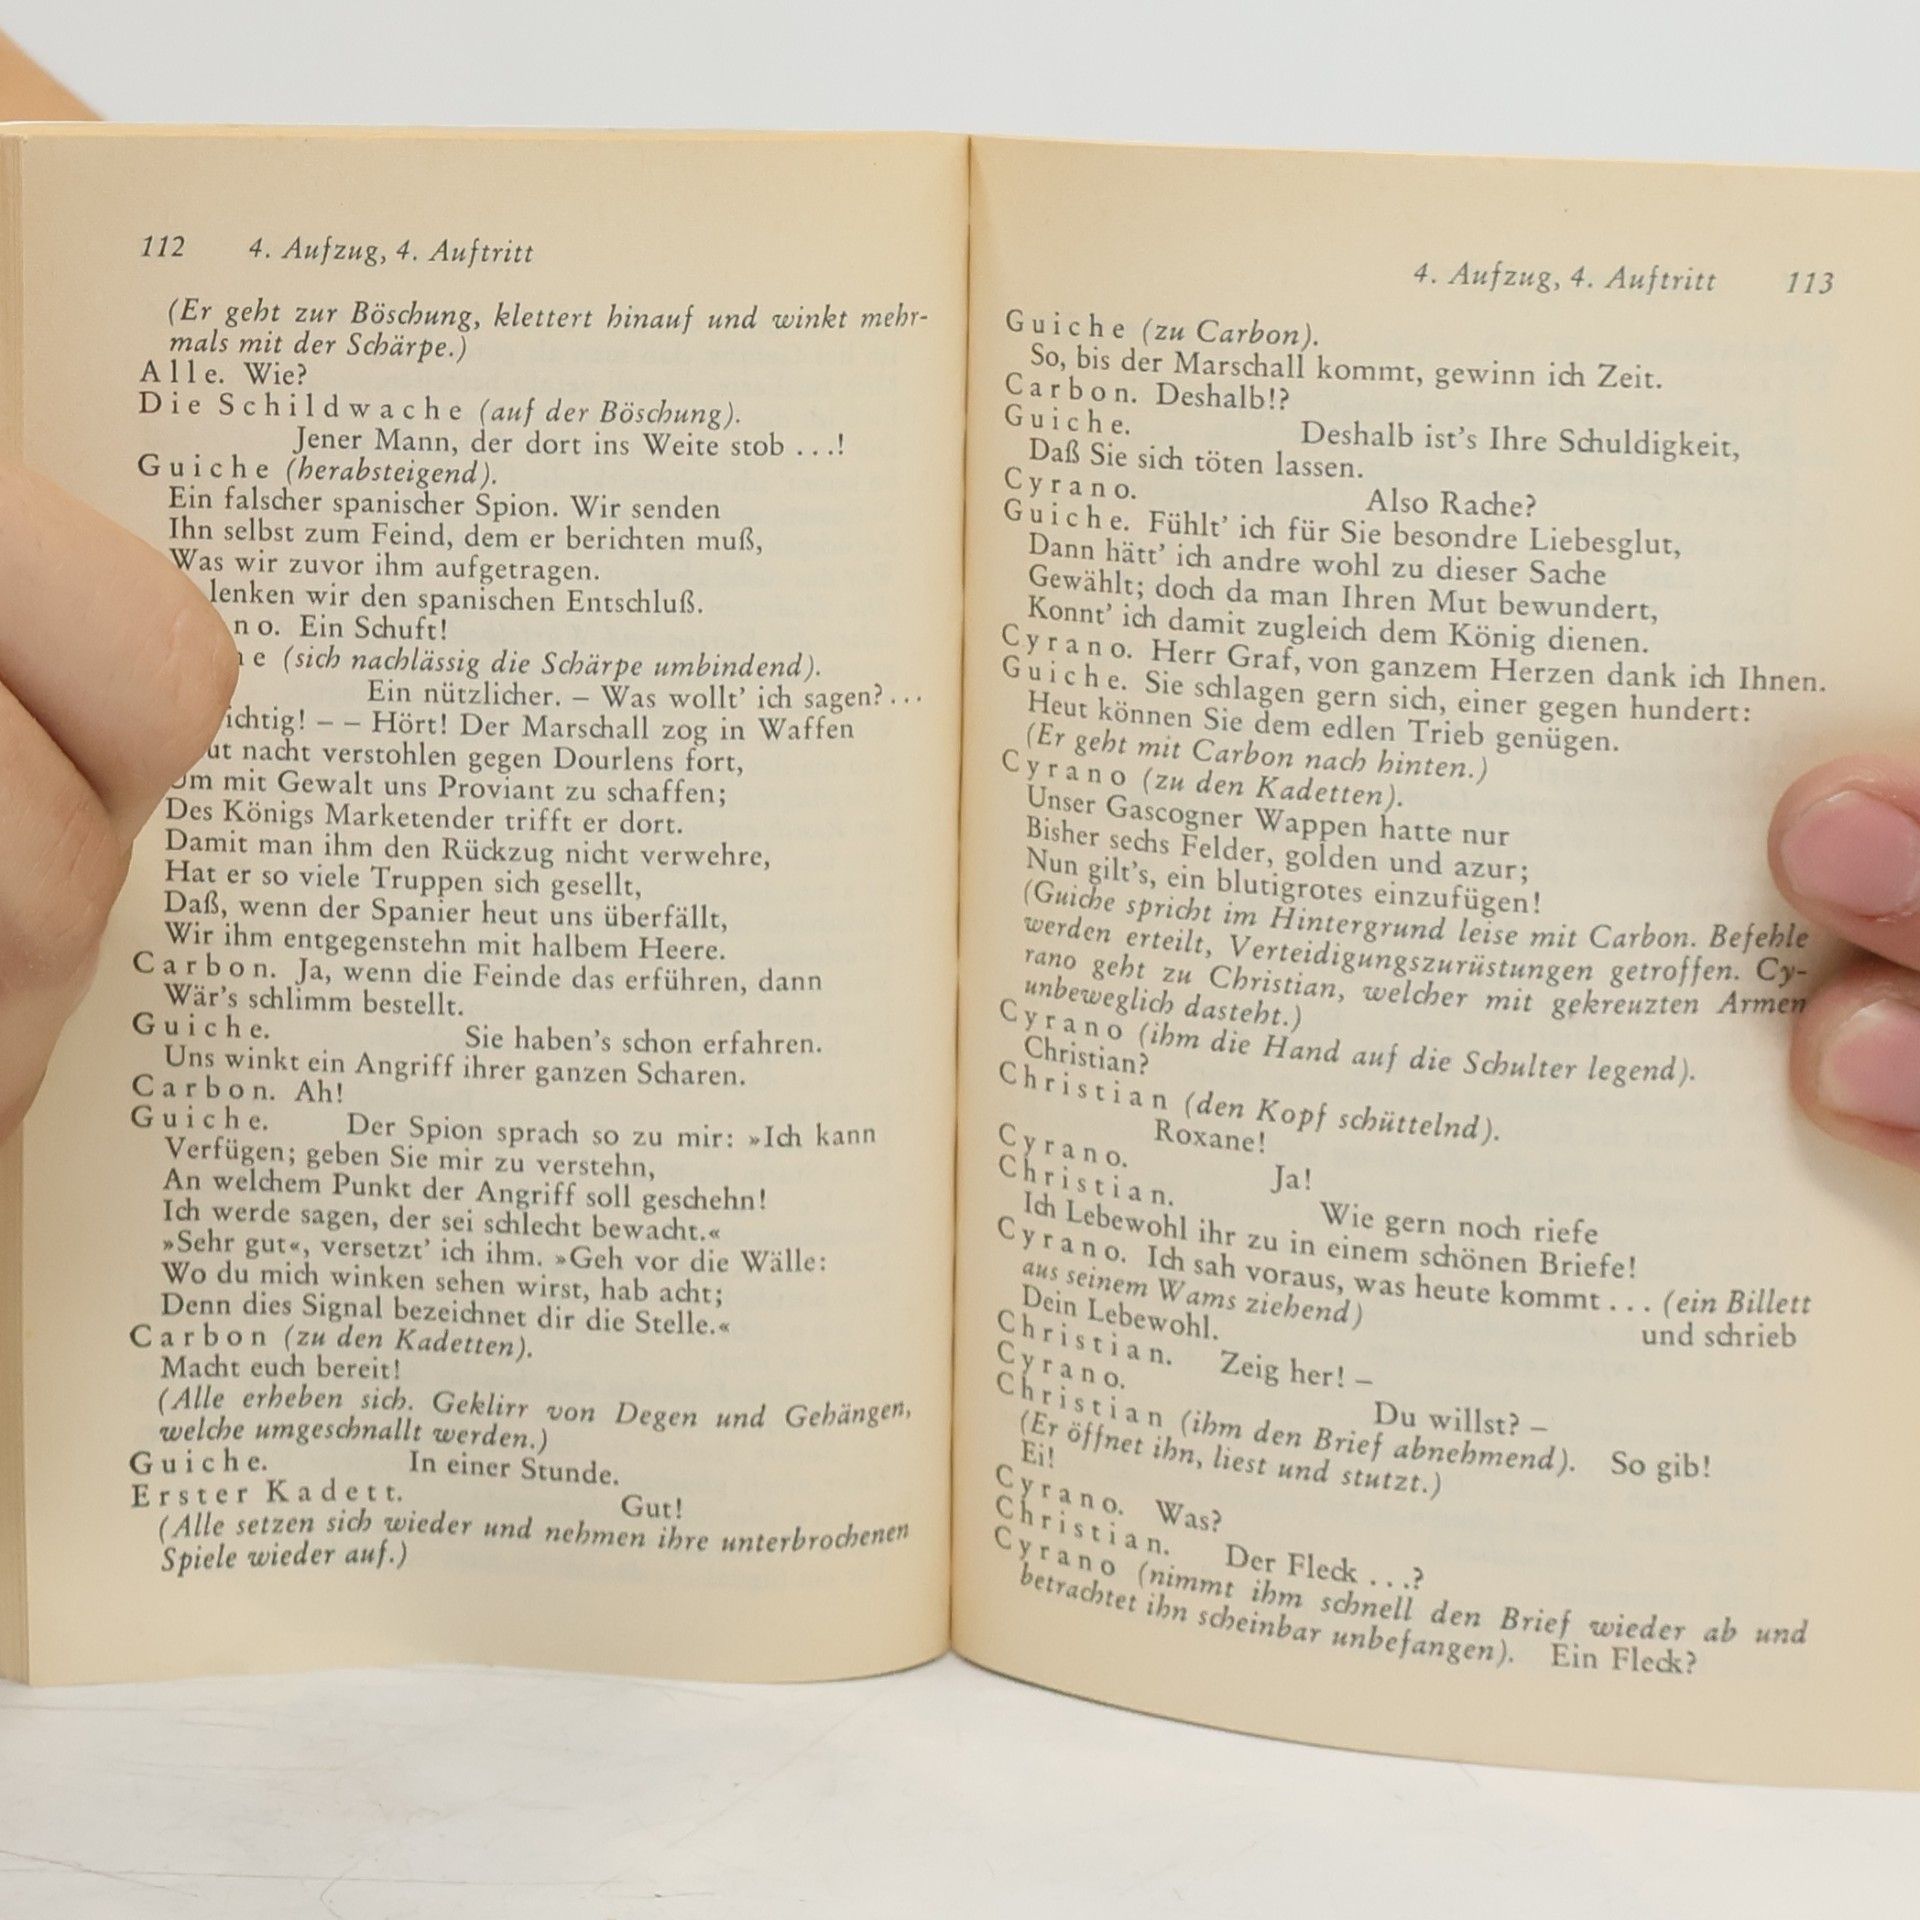 112 4. Aufzug, 4. Auftritt
(Er geht zur Böschung, klettert hinauf und winkt mehr-
mals mit der Schärpe.)
Alle. Wie?
Die Schildwache (auf der Böschung).
Jener Mann, der dort ins Weite stob ...!
Guiche (herabsteigend).
Ein falscher spanischer Spion. Wir senden
Ihn selbst zum Feind, dem er berichten muß,
Was wir zuvor ihm aufgetragen.
lenken wir den spanischen Entschluß.
no. Ein Schuft!
e (sich nachlässig die Schärpe umbindend).
Ein nützlicher. – Was wollt' ich sagen? ...
ichtig! – – Hört! Der Marschall zog in Waffen
ut nacht verstohlen gegen Dourlens fort,
Um mit Gewalt uns Proviant zu schaffen;
Des Königs Marketender trifft er dort.
Damit man ihm den Rückzug nicht verwehre,
Hat er so viele Truppen sich gesellt,
Daß, wenn der Spanier heut uns überfällt,
Wir ihm entgegenstehn mit halbem Heere.
Carbon. Ja, wenn die Feinde das erführen, dann
Wär's schlimm bestellt.
Guiche. Sie haben's schon erfahren.
Uns winkt ein Angriff ihrer ganzen Scharen.
Carbon. Ah!
Guiche. Der Spion sprach so zu mir: »Ich kann
Verfügen; geben Sie mir zu verstehn,
An welchem Punkt der Angriff soll geschehn!
Ich werde sagen, der sei schlecht bewacht.«
»Sehr gut«, versetzt' ich ihm. »Geh vor die Wälle:
Wo du mich winken sehen wirst, hab acht;
Denn dies Signal bezeichnet dir die Stelle.«
Carbon (zu den Kadetten).
Macht euch bereit!
(Alle erheben sich. Geklirr von Degen und Gehängen,
welche umgeschnallt werden.)
Guiche. In einer Stunde.
Erster Kadett. Gut!
(Alle setzen sich wieder und nehmen ihre unterbrochenen
Spiele wieder auf.)
4. Aufzug, 4. Auftritt 113
Guiche (zu Carbon).
So, bis der Marschall kommt, gewinn ich Zeit.
Carbon. Deshalb!?
Guiche. Deshalb ist's Ihre Schuldigkeit,
Daß Sie sich töten lassen.
Cyrano. Also Rache?
Guiche. Fühlt' ich für Sie besondre Liebesglut,
Dann hätt' ich andre wohl zu dieser Sache
Gewählt; doch da man Ihren Mut bewundert,
Konnt' ich damit zugleich dem König dienen.
Cyrano. Herr Graf, von ganzem Herzen dank ich Ihnen.
Guiche. Sie schlagen gern sich, einer gegen hundert:
Heut können Sie dem edlen Trieb genügen.
(Er geht mit Carbon nach hinten.)
Cyrano (zu den Kadetten).
Unser Gascogner Wappen hatte nur
Bisher sechs Felder, golden und azur;
Nun gilt's, ein blutigrotes einzufügen!
(Guiche spricht im Hintergrund leise mit Carbon. Befehle
werden erteilt, Verteidigungszurüstungen getroffen. Cy-
rano geht zu Christian, welcher mit gekreuzten Armen
unbeweglich dasteht.)
Cyrano (ihm die Hand auf die Schulter legend).
Christian?
Christian (den Kopf schüttelnd).
Roxane!
Cyrano. Ja!
Christian. Wie gern noch riefe
Ich Lebewohl ihr zu in einem schönen Briefe!
Cyrano. Ich sah voraus, was heute kommt ... (ein Billett
aus seinem Wams ziehend) und schrieb
Dein Lebewohl.
Christian. Zeig her! –
Cyrano. Du willst? –
Christian (ihm den Brief abnehmend). So gib!
(Er öffnet ihn, liest und stutzt.)
Ei!
Cyrano. Was?
Christian. Der Fleck ...?
Cyrano (nimmt ihm schnell den Brief wieder ab und
betrachtet ihn scheinbar unbefangen). Ein Fleck?